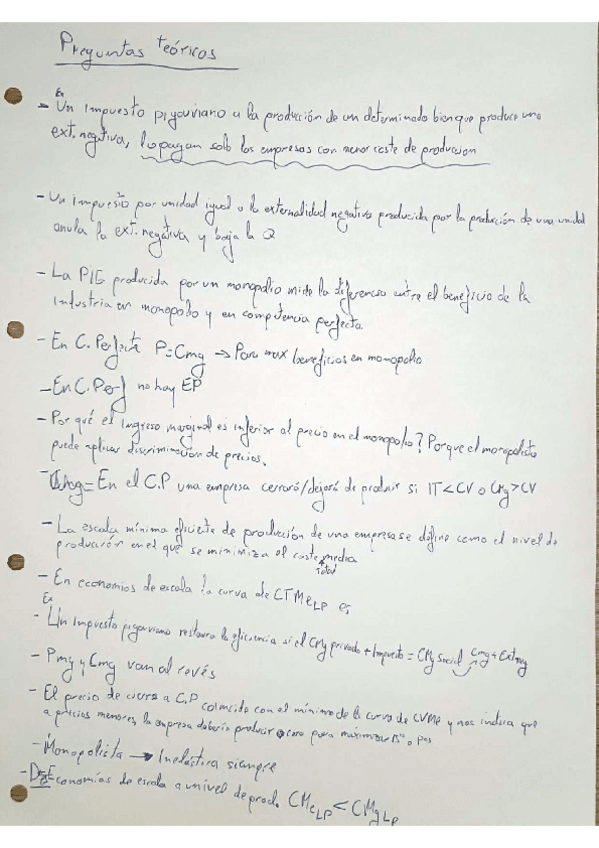 Preguntas teóricas
Ex
- Un impuesto pigouviano a la producción de un determinado bien que produce una
ext. negativa, lo pagan solo las empresas con menor coste de produccion
- Un impuesto por unidad igual a la externalidad negativa producida por la producción de una unidad
anula la ext. negativa y baja la Q
- La PIE producida por un monopolio mide la diferencia entre el beneficio de la
Industria en monopolio y en competencia perfecta
- En C. Perfecta P=Cmg → Para max beneficios en monopolio
- En C. Perf no hay EP
- Por qué el ingreso marginal es inferior al precio en el monopolio? Porque el monopolista
puede aplicar discriminación de precios.
- En el C.P una empresa cerrará/dejará de producir si IT<CV o
- La escala mínima eficiente de producción de una empresa se define como el nivel de
producción en el que se minimiza el coste medio
total
- En economías de escala la curva de CTMeLP es
Ex
- Un impuesto pigouviano restaura la eficiencia si el CMg privado + Impuesto = CMg Social Cmg + Extmg
- Pmg y Cmg van al revés
- El precio de cierre a C.P coincide con el mínimo de la curva de CVMe y nos indica que
a precios menores, la empresa debería producir cero para maximizar Bº o pos
- Monopolista → Inelástica siempre
- Economías de escala a un nivel de prod. CMeLP < CMgLP